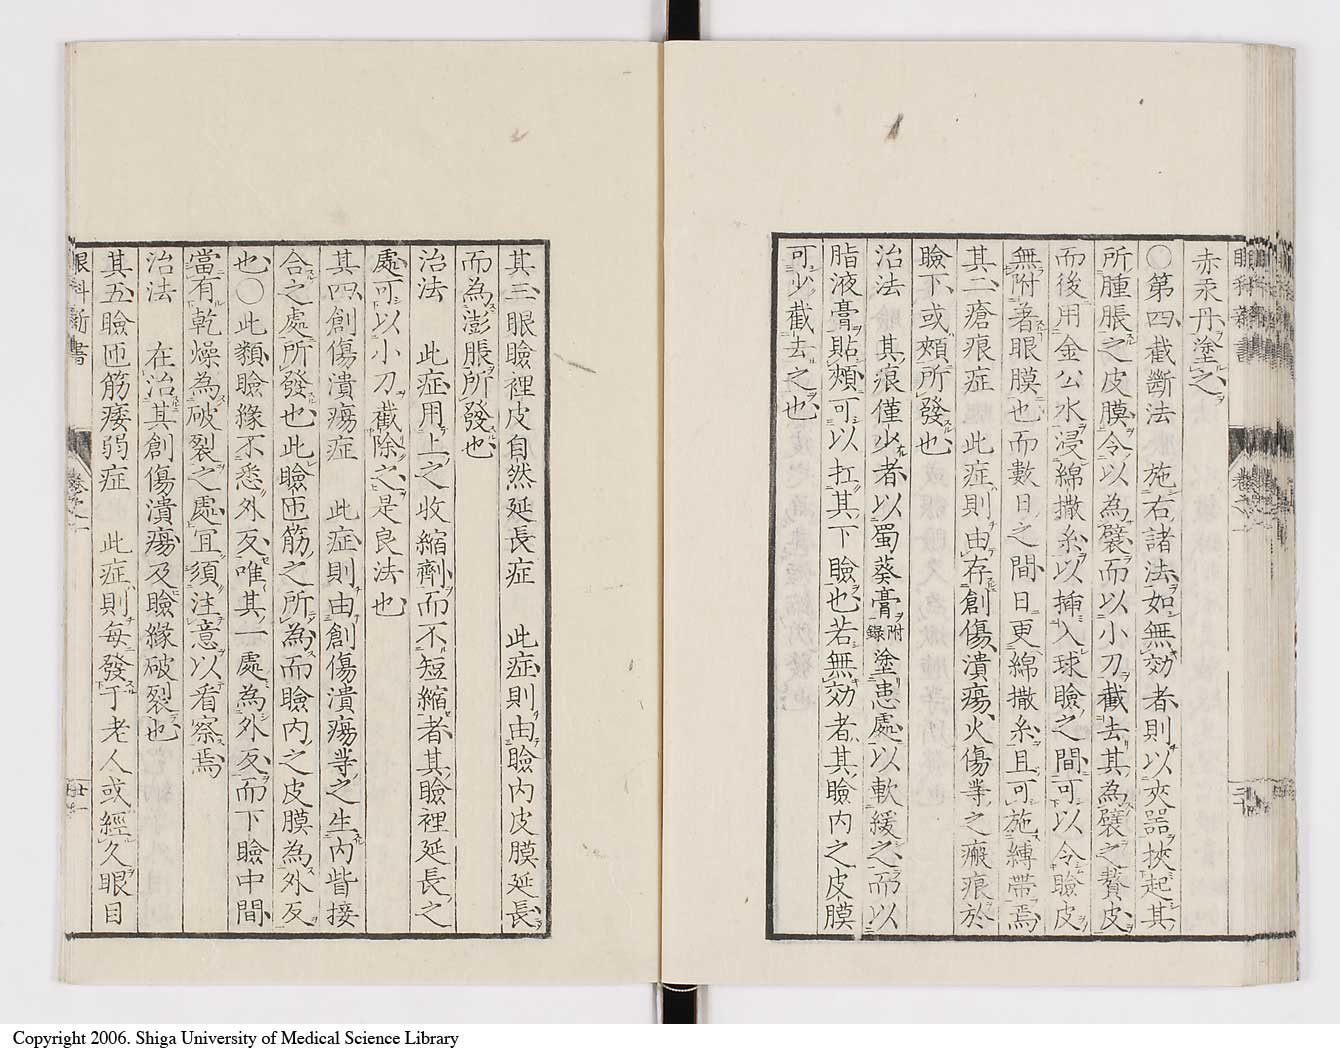 赤汞丹塗之
〇第四截斷法　施右諸法如無効者則以夾噐挾起其
所腫脹之皮膜令以為襞而以小刀截去其為襞之贅皮
而後用金公水浸綿撒糸以揷入球瞼之間可以令瞼皮
無附著眼膜也而數日之間日更綿撒糸且可施縛帶焉
其二瘡痕症　此症則由存創傷潰瘍火傷等之瘢痕於
瞼下或頰所發也
治法　其痕僅少者以蜀葵膏附錄塗患處以軟緩之而以
脂液膏貼頰可以扛其下瞼也若無効者其瞼内之皮膜
可少截去之也
其三眼瞼裡皮自然延長症　此症則由瞼内皮膜延長
而為澎脹所發也
治法　此症用上之收縮劑而不短縮者其瞼裡延長之
處可以小刀截除之是良法也
其四創傷潰瘍症　此症則由創傷潰瘍等之生内眥接
合之處所發也此瞼匝筋之所為而瞼内之皮膜為外反
也〇此類瞼緣不悉外反唯其一處為外反而下瞼中間
當有乾燥為破裂之處宜須注意以看察焉
治法　在治其創傷潰瘍及瞼緣破裂也
其五瞼匝筋痿弱症　此症則每發于老人或經久眼目
眼科新書
卷之一